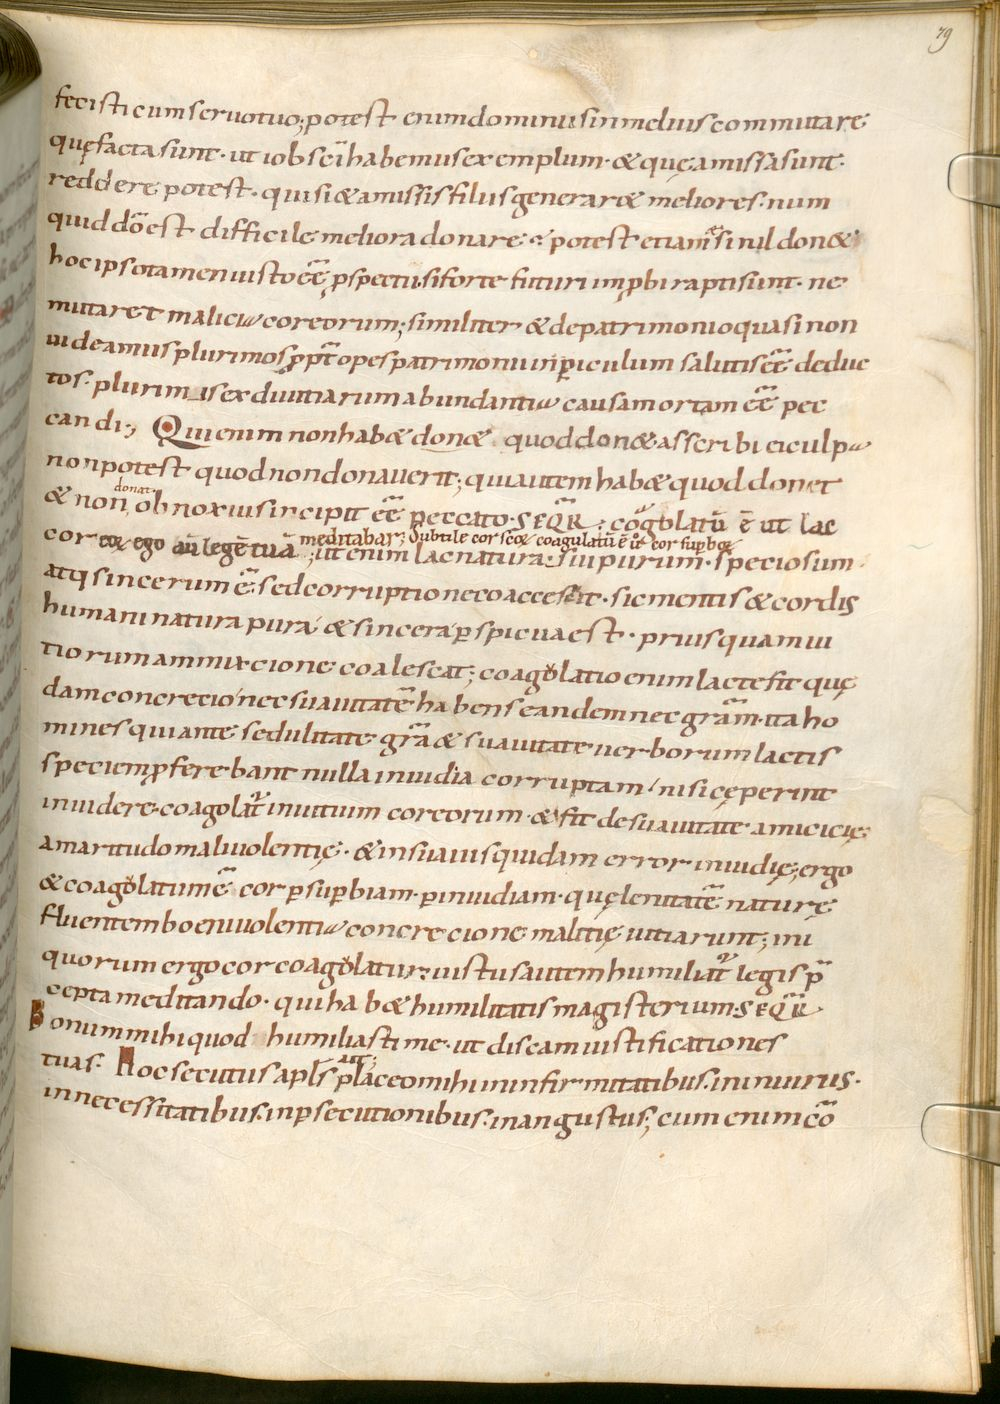 79
fecisti cum seruo tuo; potest enim dominus in melius commutare
quę facta sunt · ut iob sc̄i habemus exemplum · & quę amissa sunt ·
reddere potest · qui si & amissis filiis generar& meliores · num
quid dō est difficile meliora donare · potest etiam si nil don&
hoc ipso tamen iusto eē ꝓspectū si forte futuri imꝓbi rapti sunt · ne
mutaret malicia cor eorum; similiter & de patrimonio quasi non
uideamus plurimos ꝓpt̄ opes patrimonii in ꝑiculum salutis eē deduc
tos · plurimis ex diuitiarum abundantia causam ortam eē pec
candi; Qui enim non hab& don& quod don& asscribi ei culpa
non potest quod non donauerit; qui autem hab& quod donet
donat
& non, obnoxius incipit eē peccato · SEQR̄ : coagolatū ē ut lac
cor eoꝝ ego aū legē tuā meditabar; Subtile cor scōꝝ coagulatū ē ut cor supboꝝ
; ut enim lac natura sui purum · speciosum ·
atq; sincerum ē · sed corruptione coaccescit · sic mentis & cordis
humani natura pura & sincera ꝑspicua est · priusquam ui
tiorum ammixcione coalescat; coagolatio enim lacte fit quę
dam concretio nec suauitatē habens eandem nec grām · ita ho
mines qui ante sedulitate grā & suauitate uerborum lactis
speciem ꝓferebant nulla inuidia corruptam / nisi cęperint
inuidere · coagolat̄ in uitium cor eorum · & fit de suauitate amicicię
amaritudo maliuolentię · & insuauis quidam error inuidię; ergo
& coagolatum ē cor ꝑ supbiam · ꝑ inuidiam · quę lenitatē naturę
fluentem boeniuolentia concrecione malitię uitiarunt; ini
quorum ergo cor coagolatur · iustus autem humiliat̄ legis p̄
cepta meditando · qui hab& humilitatis magisterium · SEQR̄
Bonum mihi quod humiliasti me · ut discam iustificationes
tuas · Hoc secutus apls̄ placeo mihi in infirmitatibus · in iniuriis ·
in necessitatibus · in ꝑsecutionibus · in angustiis; cum enim cō